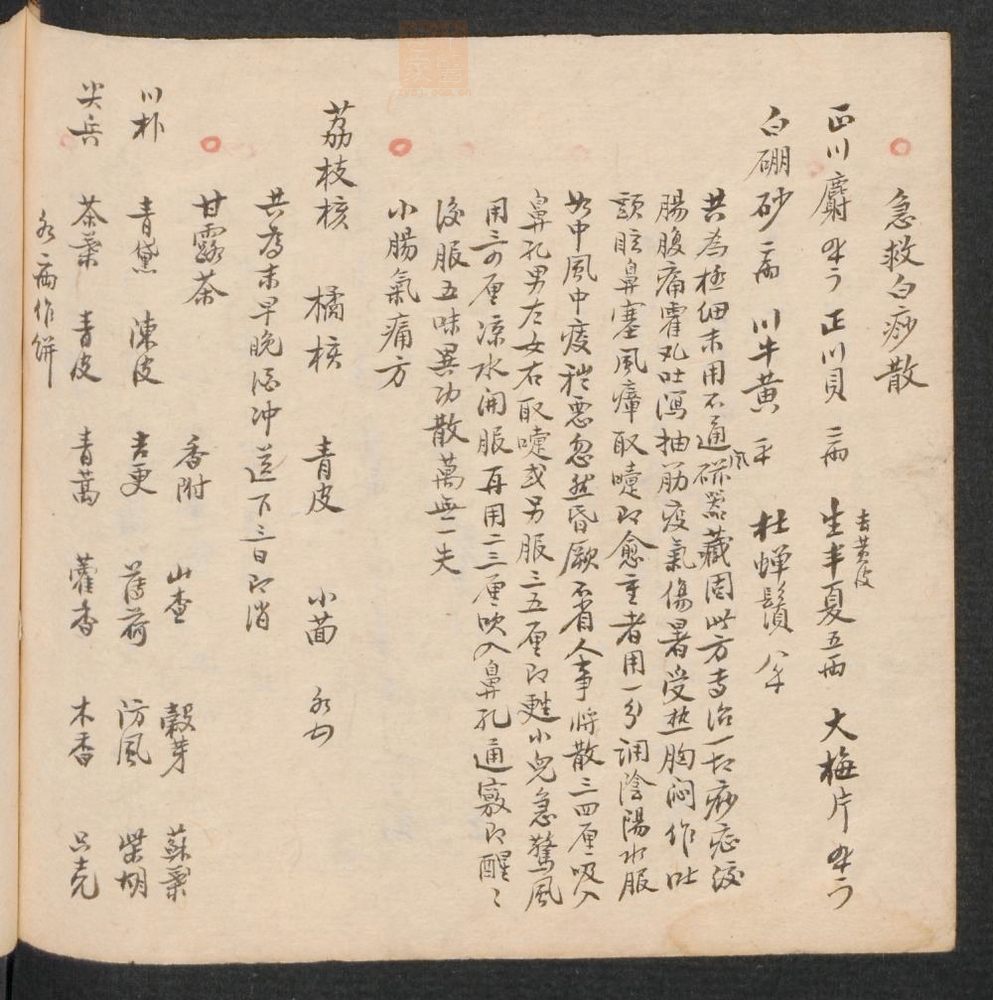 急救白痧散
正川麝 正川貝 二両 生半夏五両 去黄皮 大梅片
白硼砂二両 川牛黄 杜蟬鬚
共為極細末用不通風磁器藏固此方專治一切痧症絞
腸腹痛霍乱吐瀉抽筋疫氣傷暑受热胸闷作吐
頭眩鼻塞風瘴取嚏即愈重者用一分調陰陽水服
如中風中痰穢悪忽然昏厥不省人事將散三四厘吸入
鼻孔男左女右取嚏或另服三五厘即甦小兒急驚風
用三四厘凉水開服再用二三厘吹入鼻孔通竅即醒々
後服五味異功散萬無一失
小腸氣痛方
荔枝核 橘核 青皮 小茴 各
共為末早晚酒冲送下三日即消
甘露茶
香附 山查 穀芽 蘇葉
川朴 青黛 陳皮 吉更 薄荷 防風 柴胡
尖兵 茶葉 青皮 青蒿 藿香 木香 只壳
各二両作餅